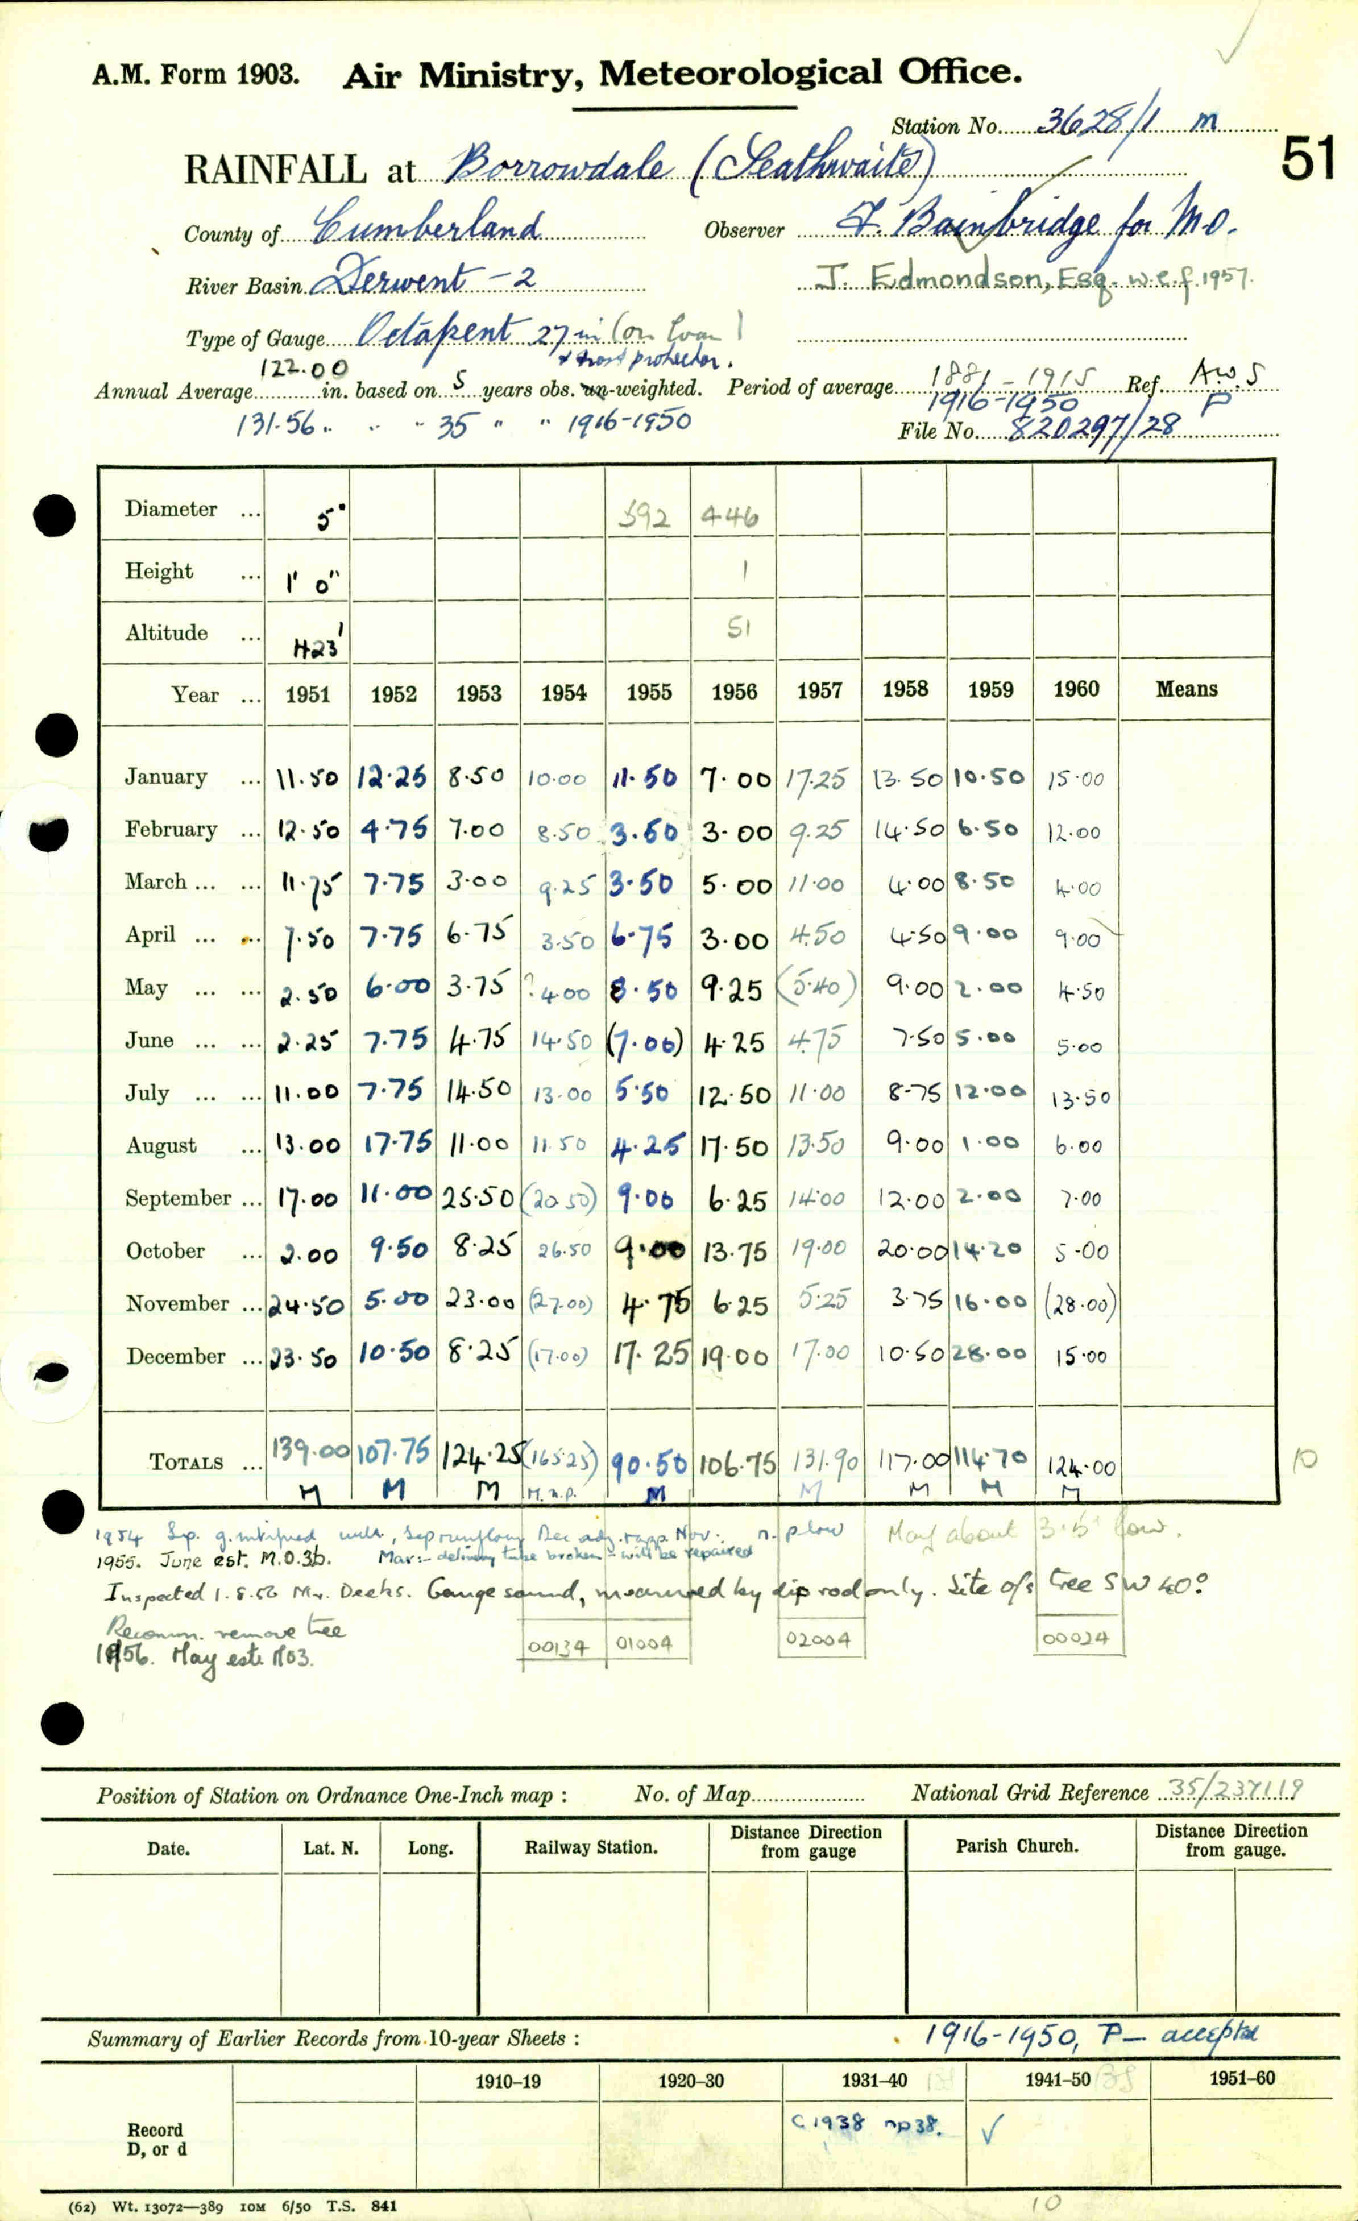 A.M. Form 1903. Air Ministry, Meteorological Office.
Station No. 3628/1 m
51
RAINFALL at Borrowdale (Seathwaite)
County of Cumberland Observer F. Bainbridge for M.O.
River Basin Derwent - 2 J. Edmondson, Esq. w.e.f. 1957.
Type of Gauge Octapent 27 in (on loan)
+ frost protector.
Annual Average 122.00 in. based on 5 years obs. un-weighted. Period of average 1881-1915 Ref. A.W.S
131.56 " " " 35 " " 1916-1950 1916-1950 P
File No. 820297/28
Diameter ... 5" 592 446
Height ... 1' 0" 1
Altitude ... 423' 51
Year ... 1951 1952 1953 1954 1955 1956 1957 1958 1959 1960 Means
January ... 11.50 12.25 8.50 10.00 11.50 7.00 17.25 13.50 10.50 15.00
February ... 12.50 4.75 7.00 8.50 3.50 3.00 9.25 14.50 6.50 12.00
March ... ... 11.75 7.75 3.00 9.25 3.50 5.00 11.00 4.00 8.50 4.00
April ... ... 7.50 7.75 6.75 3.50 6.75 3.00 4.50 4.50 9.00 9.00
May ... ... 2.50 6.00 3.75 ?4.00 8.50 9.25 (5.40) 9.00 2.00 4.50
June ... ... 2.25 7.75 4.75 14.50 (7.00) 4.25 4.75 7.50 5.00 5.00
July ... ... 11.00 7.75 14.50 13.00 5.50 12.50 11.00 8.75 12.00 13.50
August ... 13.00 17.75 11.00 11.50 4.25 17.50 13.50 9.00 1.00 6.00
September ... 17.00 11.00 25.50 (20.50) 9.00 6.25 14.00 12.00 2.00 7.00
October ... 2.00 9.50 8.25 26.50 9.00 13.75 19.00 20.00 14.20 5.00
November ... 24.50 5.00 23.00 (27.00) 4.75 6.25 5.25 3.75 16.00 (28.00)
December ... 23.50 10.50 8.25 (17.00) 17.25 19.00 17.00 10.50 28.00 15.00
TOTALS ... 139.00 107.75 124.25 (165.25) 90.50 106.75 131.90 117.00 114.70 124.00
M M M M.n.p. M M M M M
10
1954 Sep. Nov. n.p low May about 3.5" low.
1955. June est. M.O.3b. Mar:- delivery tube broken - will be repaired
Inspected 1.8.56 Mr. Deeks. Gauge sound, measured by dip rod only. Site o/s tree SW 40°
Recomm. remove tree
00134 01004 02004 00024
1956. May est. M03.
Position of Station on Ordnance One-Inch map : No. of Map National Grid Reference 35/237119
Date. Lat. N. Long. Railway Station. Distance from gauge Direction Parish Church. Distance from gauge. Direction
Summary of Earlier Records from 10-year Sheets : 1916-1950, P— accepted
1910–19 1920–30 1931–40 1941–50 1951–60
Record
D, or d
C 1938 np38. ✓
(62) Wt. 13072—389 10M 6/50 T.S. 841
10